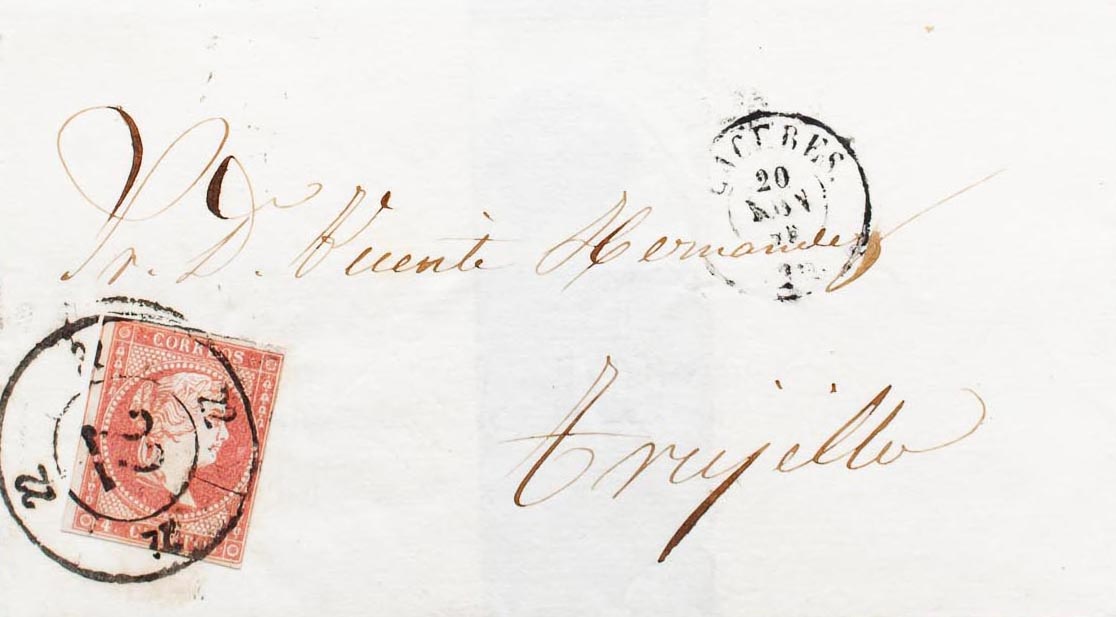 CACERES.
20
NOV
Sr. D. Vicente Hernandez
Trujillo
CORREOS
4. CUARTOS
22
22